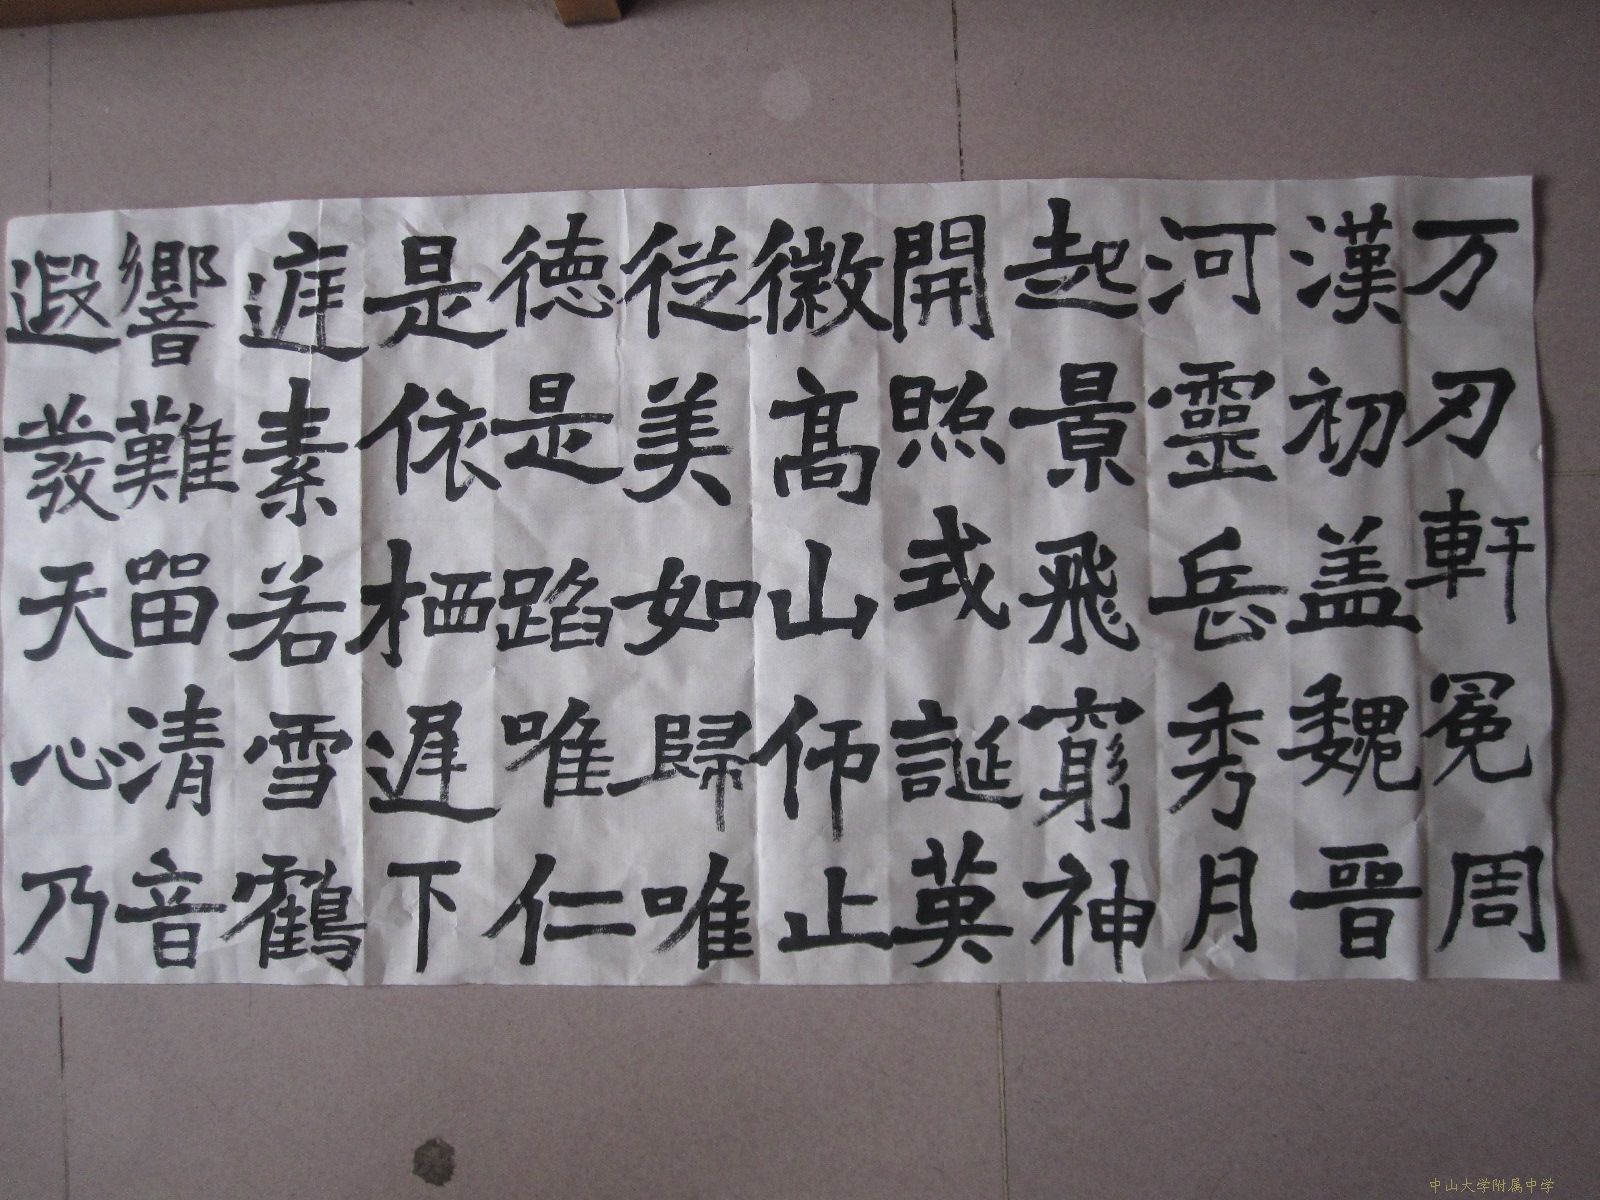 万刃軒冕周
漢初盖魏晉
河靈岳秀月
起景飛窮神
開照式誕英
徽高山仰止
從美如歸唯
德是蹈唯仁
是依栖遲下
庭素若雪鶴
響難留清音
遐發天心乃
中山大学附属中学